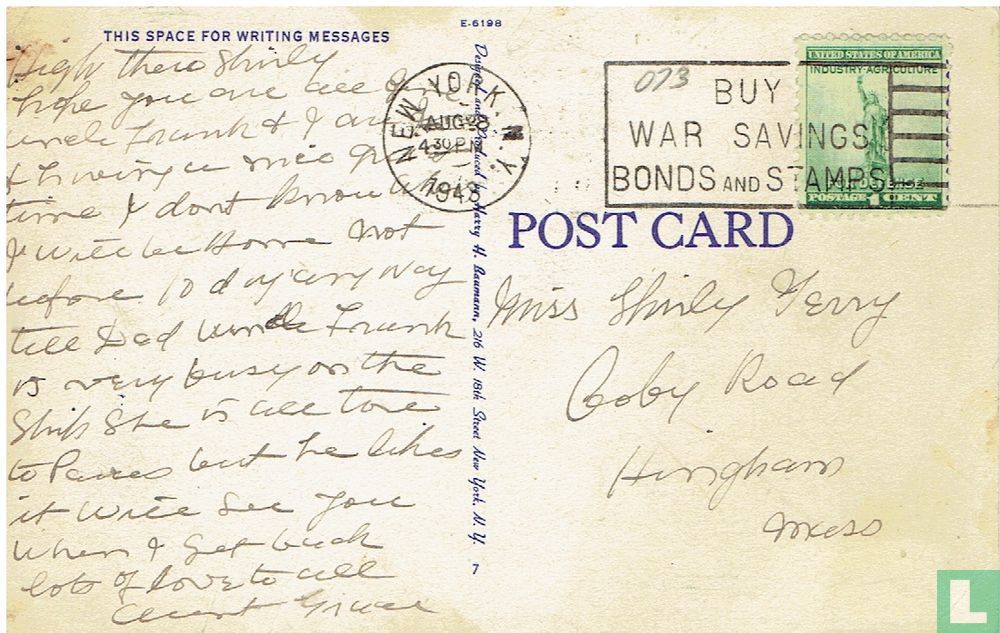 E-6198
THIS SPACE FOR WRITING MESSAGES
High there Shirly
hope you are all fine
uncle Frank & I are
& having a nice
time I dont know when
I will be Home not
before 10 day any way
tell Dad Uncle Frank
is very busy on the
Ship She is all tore
to Paices but he likes
it Will See you
When I Get back
lots of love to all
Aunt Grace
Designed and Produced by Harry H. Baumann, 216 W. 18th Street New York, N. Y.
7
NEW YORK, N.Y.
AUG
430 PM
1943
073
BUY
WAR SAVINGS
BONDS AND STAMPS
UNITED STATES OF AMERICA
INDUSTRY-AGRICULTURE
FOR DEFENSE
POSTAGE 1 CENT
POST CARD
Miss Shirly Terry
Coby Road
Hingham
Mass
L